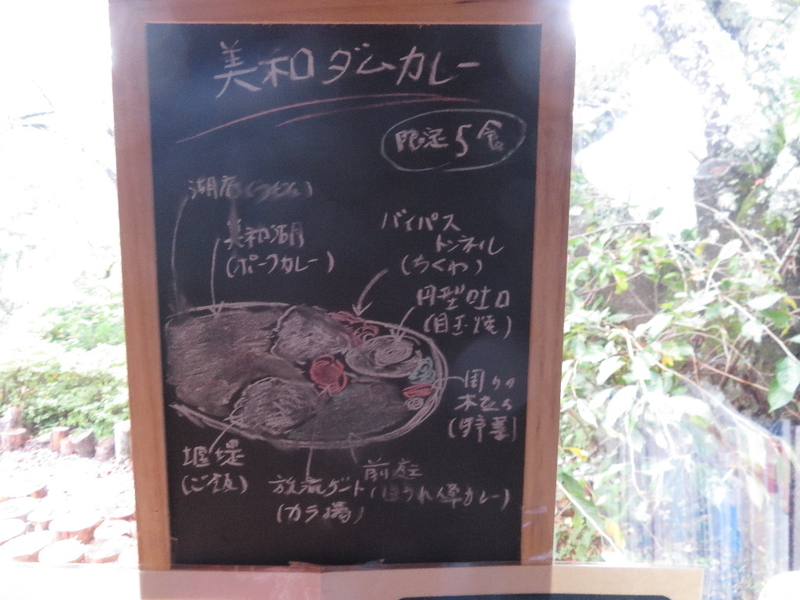 美和ダムカレー
限定5食
湖底(うどん)
美和湖
(ポークカレー)
バイパス
トンネル
(ちくわ)
円型吐口
(目玉焼)
周りの
木立ち
(野菜)
堰堤
(ご飯)
放流ゲート
(カラ揚)
前庭
(ほうれん草カレー)